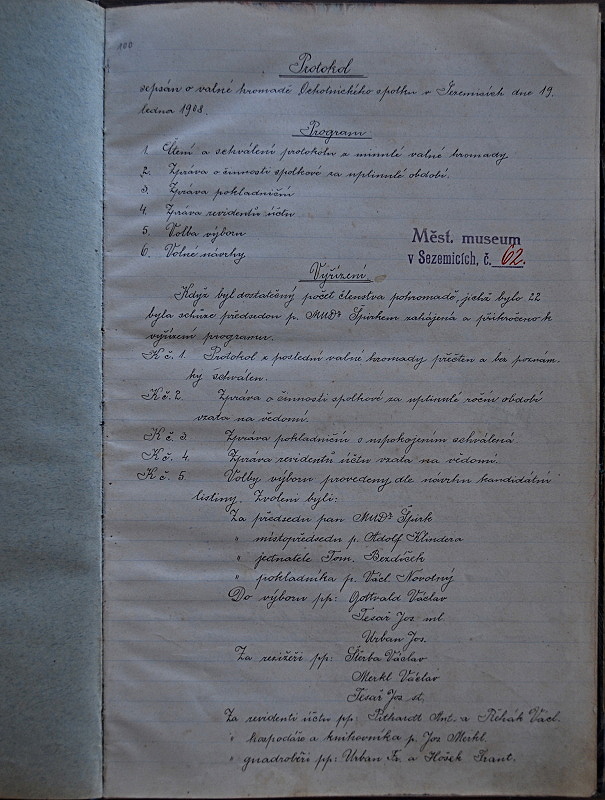 100
Protokol
sepsán o valné hromadě Ochotnického spolku v Sezemicích dne 19.
ledna 1908.
Program
1. Čtení a schválení protokolu z minulé valné hromady
2. Zpráva o činnosti spolkové za uplynulé období.
3. Zpráva pokladniční
4. Zpráva revidentů účtu
5. Volba výboru
6. Volné návrhy
Měst. museum
v Sezemicích, č. 62.
Vyřízení
Když byl dostatečný počet členstva pohromadě, jichž bylo 22
byla schůze předsedou p. MUDr Špirkem zahájena a přikročeno k
vyřízení programu.
K č. 1. Protokol z poslední valné hromady přečten a bez poznám
ky schválen.
K č. 2. Zpráva o činnosti spolkové za uplynulé roční období
vzata na vědomí.
K č. 3 Zpráva pokladniční s uspokojením schválená
K č. 4. Zpráva revidentů účtu vzata na vědomí.
K č. 5. Volby výboru provedeny dle návrhu kandidátní
listiny. Zvoleni byli:
Za předsedu pan MUDr Špirk
" místopředsedu p. Adolf Klindera
" jednatele Tom. Bezdíček
" pokladníka p. Václ. Novotný
Do výboru pp: Gottvald Václav
Tesař Jos. ml.
Urban Jos.
Za režižéři pp: Štěrba Václav
Merkl Václav
Tesař Jos. st.
Za revidenti účtu pp: Pithardt Ant. a Řehák Václ.
" hospodáře a knihovníka p. Jos. Merkl.
" gardrobéři pp: Urban Fr. a Hošek Frant.